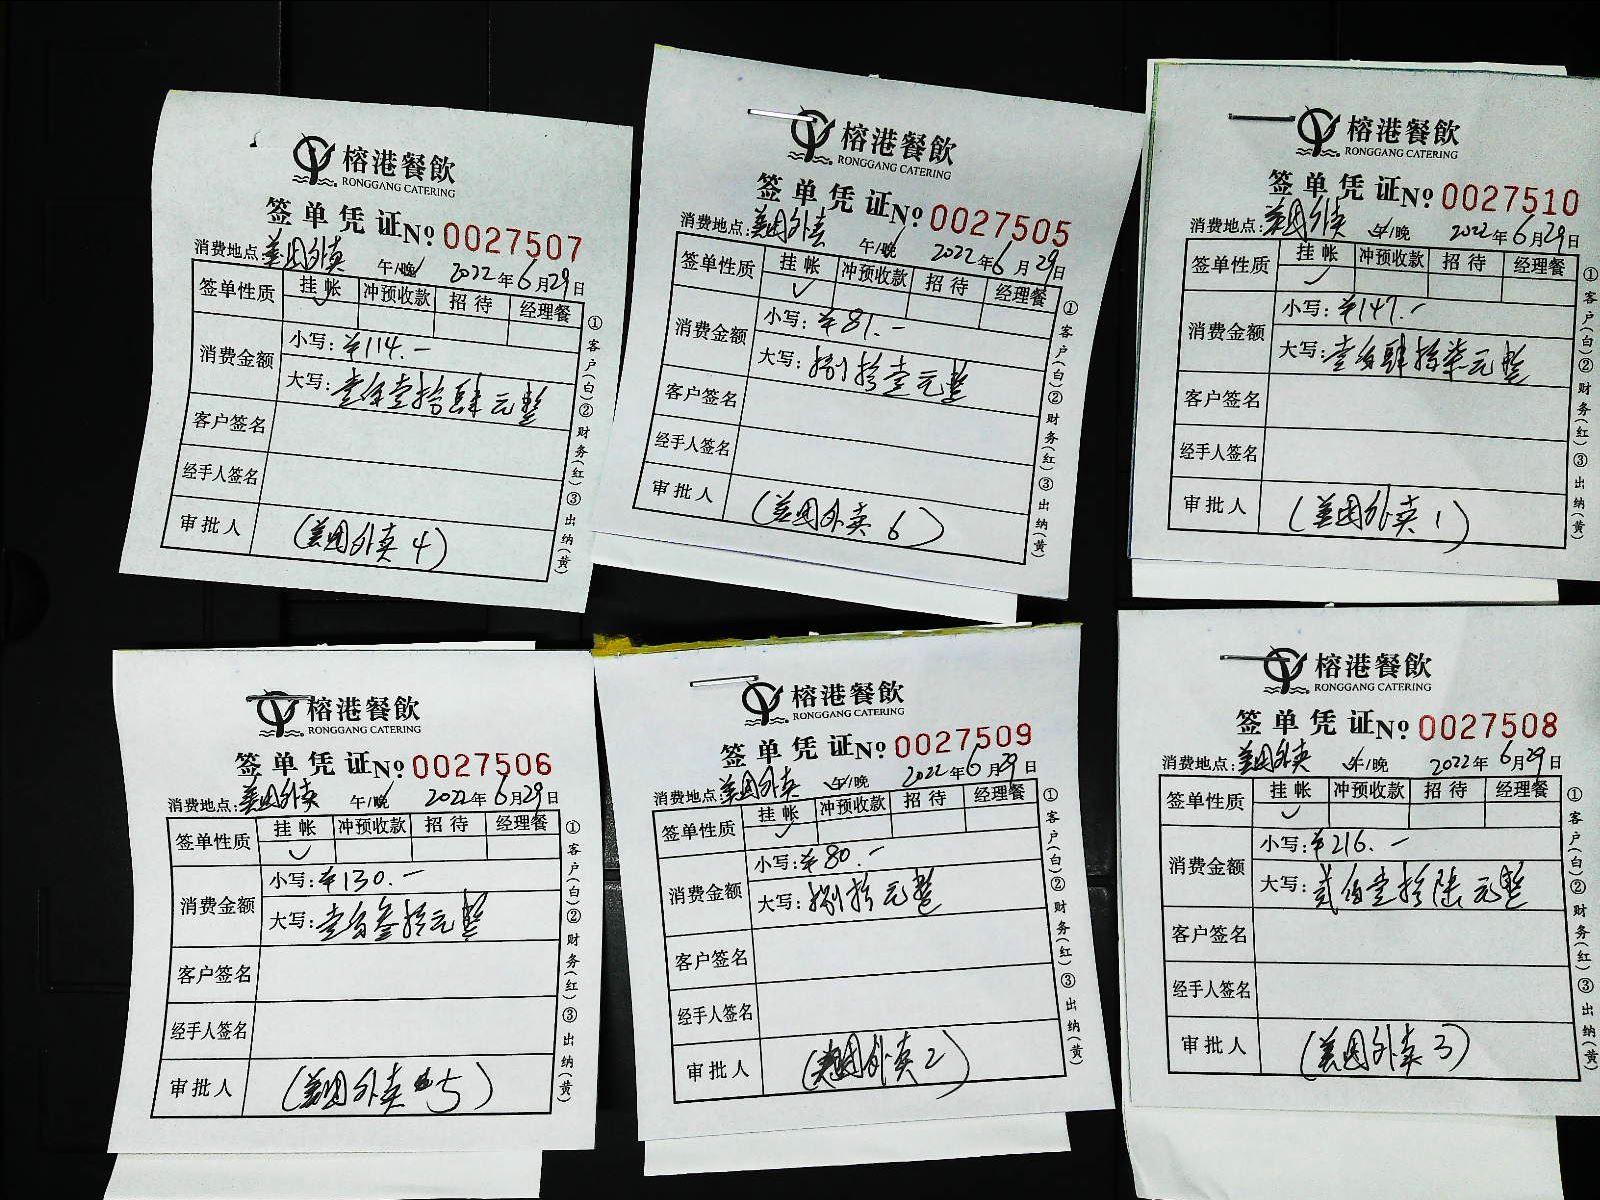 榕港餐飲
RONGGANG CATERING
签单凭证 No 0027507
消费地点:美团外卖 午/晚 2022年6月29日
签单性质 挂帐 冲预收款 招待 经理餐
✓
消费金额
小写:¥114.-
大写:壹佰壹拾肆元整
客户签名
经手人签名
审批人 (美团外卖4)
①客户(白)②财务(红)③出纳(黄)
榕港餐飲
RONGGANG CATERING
签单凭证 No 0027505
消费地点:美团外卖 午/晚 2022年6月29日
签单性质 挂帐 冲预收款 招待 经理餐
✓
消费金额
小写:¥81.-
大写:捌拾壹元整
客户签名
经手人签名
审批人 (美团外卖6)
①客户(白)②财务(红)③出纳(黄)
榕港餐飲
RONGGANG CATERING
签单凭证 No 0027510
消费地点:美团外卖 午/晚 2022年6月29日
签单性质 挂帐 冲预收款 招待 经理餐
✓
消费金额
小写:¥147.-
大写:壹佰肆拾柒元整
客户签名
经手人签名
审批人 (美团外卖1)
①客户(白)②财务(红)③出纳(黄)
榕港餐飲
RONGGANG CATERING
签单凭证 No 0027506
消费地点:美团外卖 午/晚 2022年6月29日
签单性质 挂帐 冲预收款 招待 经理餐
✓
消费金额
小写:¥130.-
大写:壹佰叁拾元整
客户签名
经手人签名
审批人 (美团外卖5)
①客户(白)②财务(红)③出纳(黄)
榕港餐飲
RONGGANG CATERING
签单凭证 No 0027509
消费地点:美团外卖 午/晚 2022年6月29日
签单性质 挂帐 冲预收款 招待 经理餐
✓
消费金额
小写:¥80.-
大写:捌拾元整
客户签名
经手人签名
审批人 (美团外卖2)
①客户(白)②财务(红)③出纳(黄)
榕港餐飲
RONGGANG CATERING
签单凭证 No 0027508
消费地点:美团外卖 午/晚 2022年6月29日
签单性质 挂帐 冲预收款 招待 经理餐
✓
消费金额
小写:¥216.-
大写:贰佰壹拾陆元整
客户签名
经手人签名
审批人 (美团外卖3)
①客户(白)②财务(红)③出纳(黄)